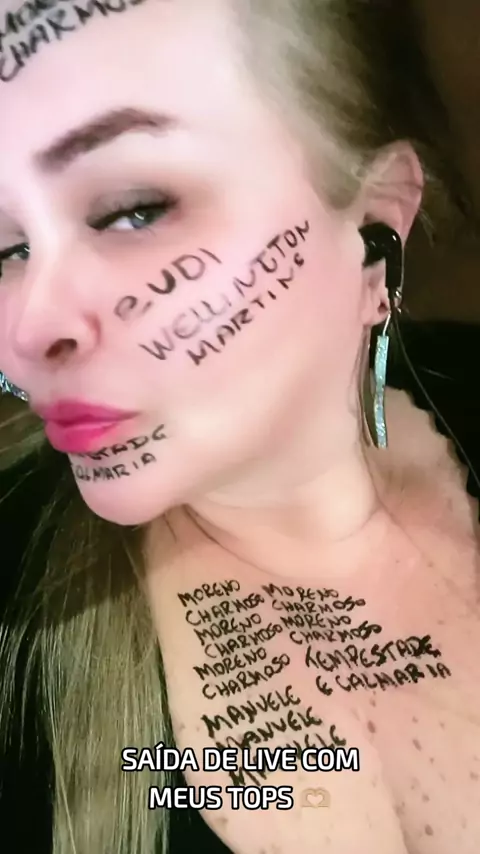 MORENO
CHARMOSO
RUDI
WELLINGTON
MARTINS
CALMARIA
MORENO MORENO
CHARMOSO CHARMOSO
MORENO MORENO
CHARMOSO CHARMOSO
MORENO
CHARMOSO TEMPESTADE
E CALMARIA
MANUELE
MANUELE
MANUELE
SAÍDA DE LIVE COM
MEUS TOPS 🫶🏼